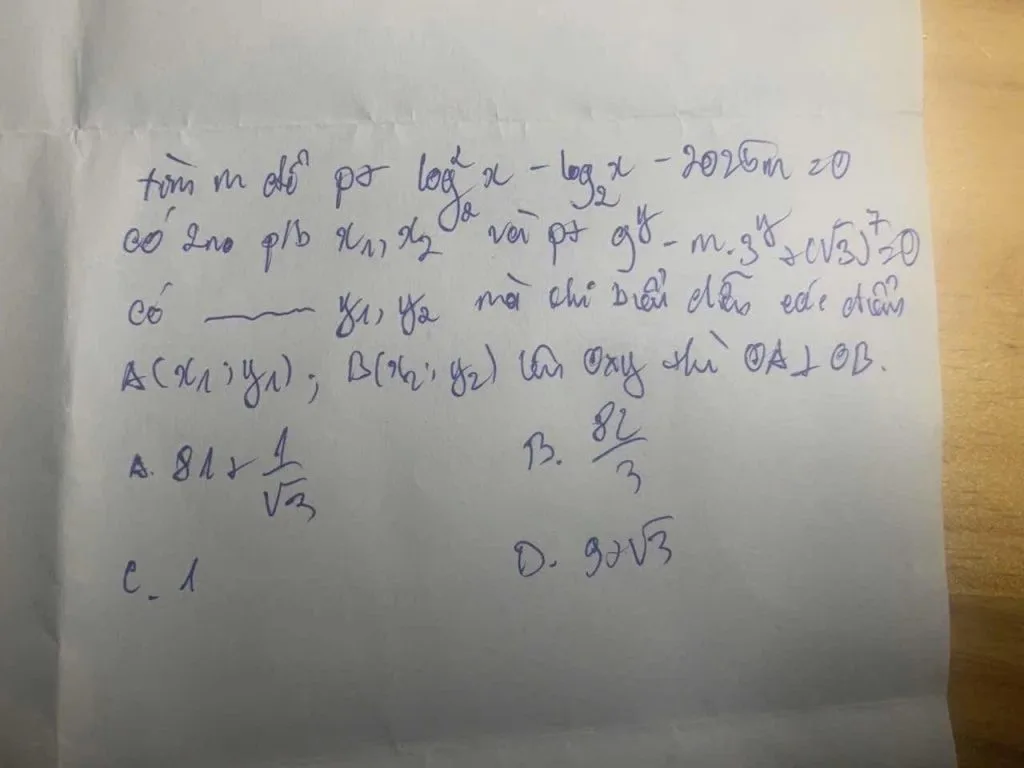 tìm m để pt log₂²x - log₂x - 2025m = 0
có 2no p/b x₁, x₂ và pt 9^y - m.3^y + (√3)^7 = 0
có ——— y₁, y₂ mà khi biểu diễn các điểm
A(x₁; y₁); B(x₂; y₂) lên Oxy thì OA ⊥ OB.
A. 81 + 1/√3 B. 82/3
C. 1 D. 9 + √3